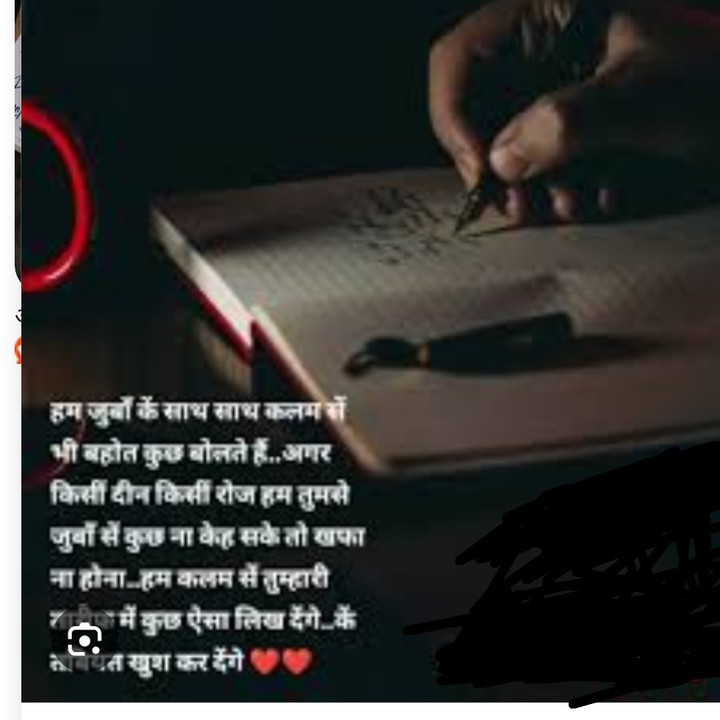 हम जुबाँ कें साथ साथ कलम सें
भी बहोत कुछ बोलते हैं..अगर
किसीं दीन किसीं रोज हम तुमसे
जुबाँ सें कुछ ना केह सके तो खफा
ना होना..हम कलम सें तुम्हारी
में कुछ ऐसा लिख देंगे..कें
खुश कर देंगे ❤️❤️